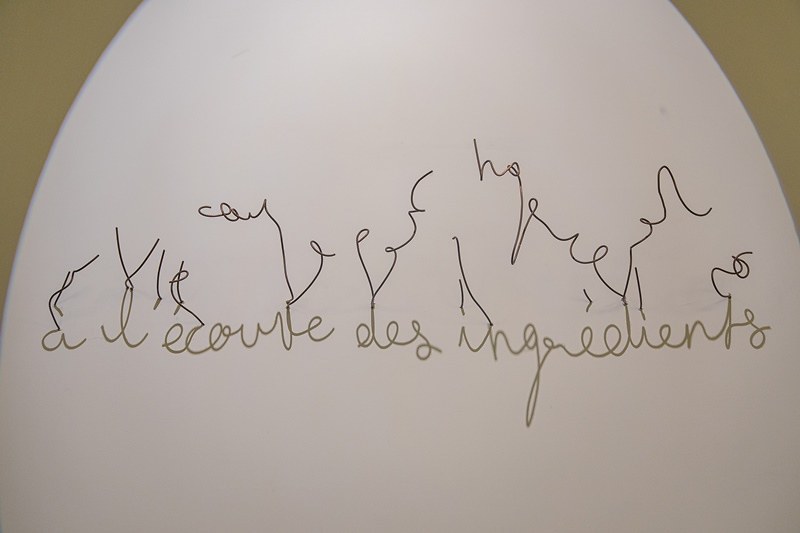 à l'écoute des ingrédients